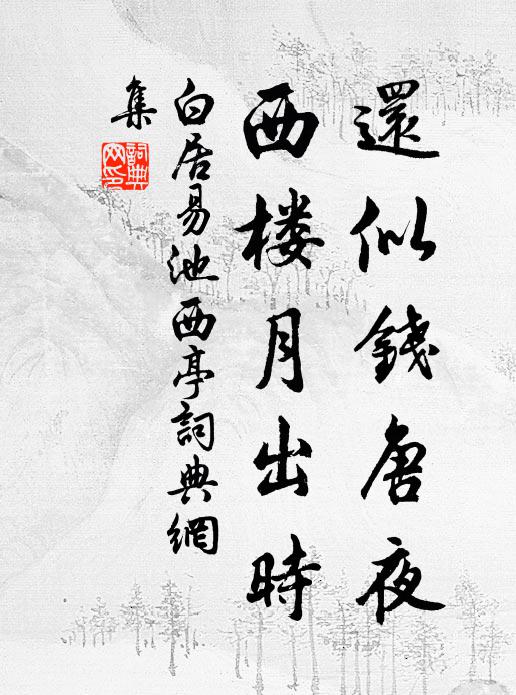 還似錢唐夜
西楼月出時
白居易池西亭詞典網
集
詞典網印